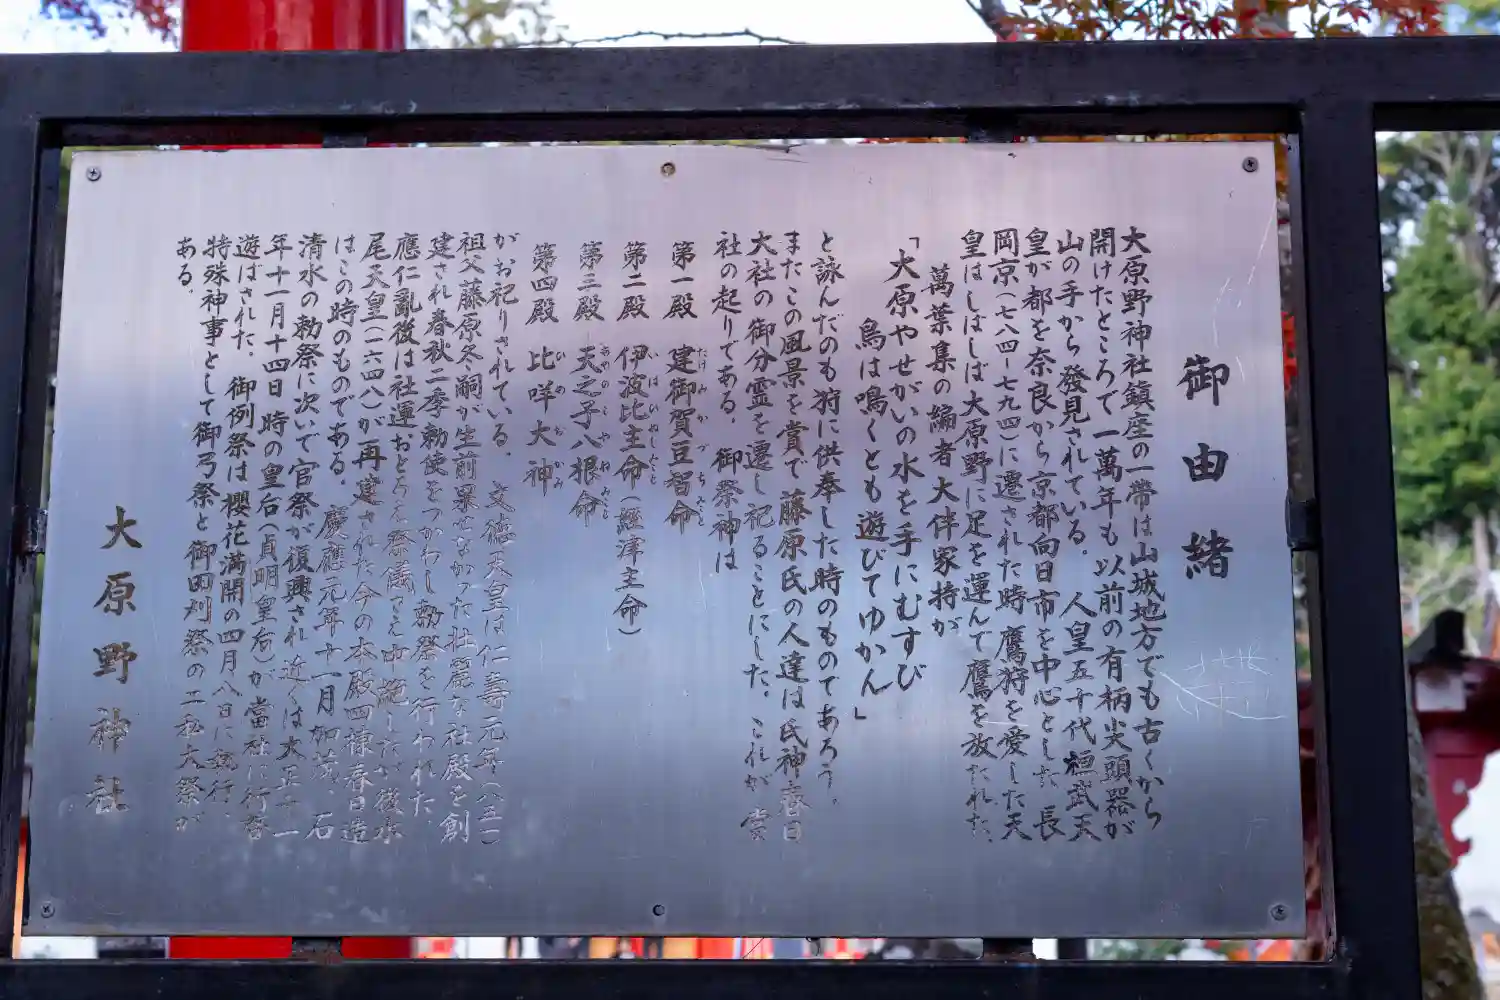 御由緒
大原野神社鎮座の一帯は山城地方でも古くから
開けたところで一萬年も以前の有柄尖頭器が
山の手から發見されている。人皇五十代桓武天
皇が都を奈良から京都向日市を中心とした長
岡京(七八四-七九四)に遷された時鷹狩を愛した天
皇はしばしば大原野に足を運んで鷹を放たれた、
萬葉集の編者大伴家持が
「大原やせがいの水を手にむすび
鳥は鳴くとも遊びてゆかん」
と詠んだのも狩に供奉した時のものであろう。
またこの風景を賞で藤原氏の人達は氏神春日
大社の御分霊を遷し祀ることにした。これが當
社の起りである。御祭神は
第一殿 建御賀豆智命
たけみかづちみこと
第二殿 伊波比主命(經津主命)
いはひぬしみこと
第三殿 天之子八根命
あめのこやねみこと
第四殿 比咩大神
ひめおおかみ
がお祀りされている。文徳天皇は仁壽元年(八五一)
祖父藤原冬嗣が生前果せなかった壮麗な社殿を創
建され春秋二季勅使をつかわし勅祭を行われた、
應仁亂後は社運おとろえ祭儀さえ中絶したが後水
尾天皇(一六四八)が再建された今の本殿四棟春日造
はこの時のものである。慶應元年十一月加茂、石
清水の勅祭に次いで官祭が復興され近くは大正十一
年十一月十四日時の皇后(貞明皇后)が當社に行啓
遊ばされた。御例祭は櫻花満開の四月八日に執行、
特殊神事として御弓祭と御田刈祭の二私大祭が
ある。
大原野神社